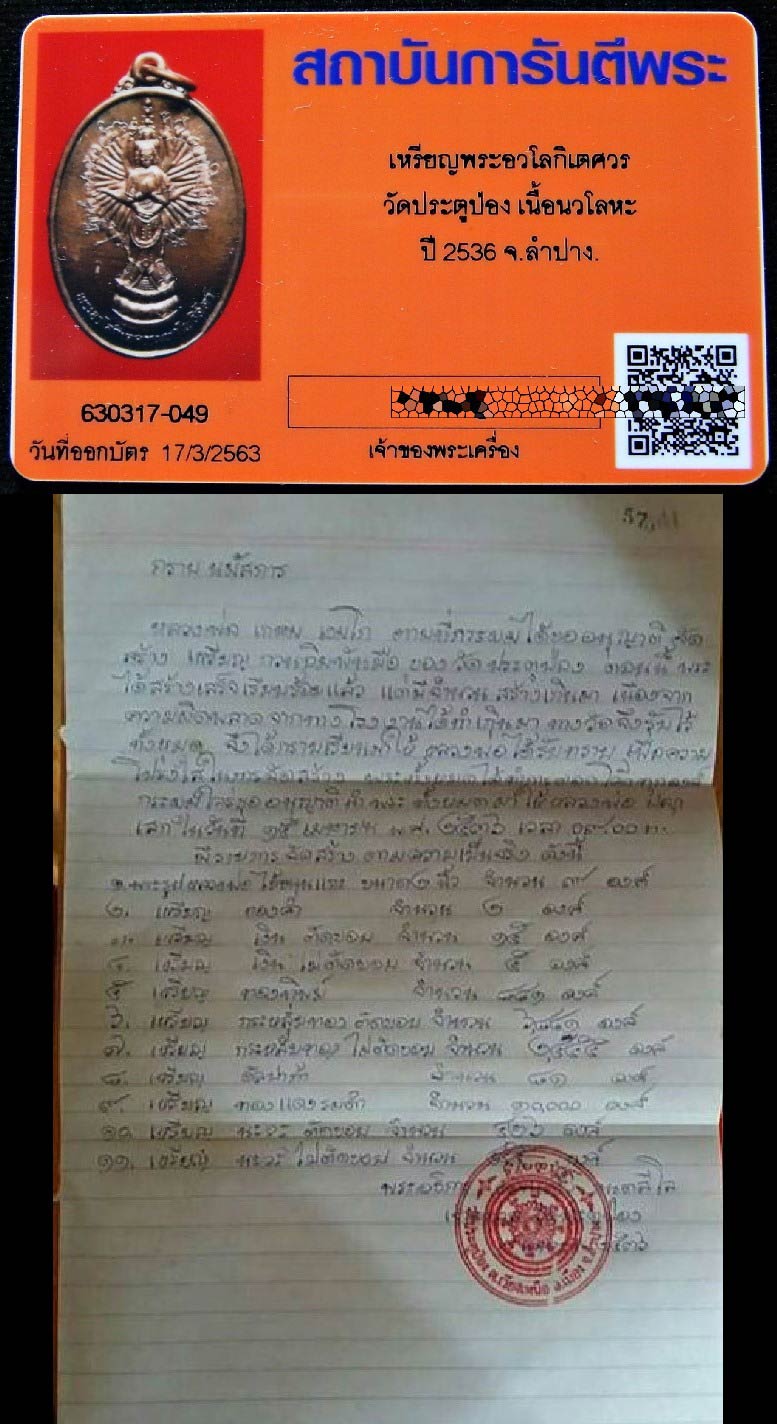 สถาบันการันตีพระ
เหรียญพระอวโลกิเตศวร
วัดประตูป่อง เนื้อนวโลหะ
ปี 2536 จ.ลำปาง.
630317-049
วันที่ออกบัตร 17/3/2563
เจ้าของพระเครื่อง
กราบ นมัสการ
หลวงพ่อ เกษม เขมโก ตามที่กระผมได้ขออนุญาติ จัด
สร้าง เหรียญ กวนอิมพันมือ ของวัดประตูป่อง ตอนนี้
ได้สร้างเสร็จเรียบร้อยแล้ว แต่มีจำนวน สร้างเกินมา เนื่องจาก
ความผิดพลาดจากทางโรงงานได้ทำเกินมา ทางวัดจึงรับไว้
ทั้งหมด จึงได้กราบเรียนมาให้ หลวงพ่อได้รับทราบ เพื่อความ
โปร่งใสในการจัดสร้าง
ขออนุญาติ นำพระทั้งหมดมาให้หลวงพ่อ
เสก ในวันที่ ๑๕ เมษายน พ.ศ. ๒๕๓๖ เวลา ๐๙.๐๐ น.
มีรายการจัดสร้าง ตามความเป็นจริง ดังนี้
จำนวน ๙ องค์
๒. เหรียญ ทองคำ จำนวน ๒ องค์
๓. เหรียญ เงิน ตัดขอบ จำนวน ๑๕ องค์
๔. เหรียญ เงิน ไม่ตัดขอบ จำนวน ๕ องค์
๕ เหรียญ ทองทิพย์ จำนวน ๘๘๑ องค์
๖. เหรียญ กระหลั่ยทอง ตัดขอบ จำนวน องค์
๗. เหรียญ กระหลั่ยทอง ไม่ตัดขอบ จำนวน องค์
๘. เหรียญ อัลปาก้า จำนวน ๘๑ องค์
๙. เหรียญ ทองแดงรมดำ จำนวน ๑๐,๐๐๐ องค์
๑๐. เหรียญ นะวะ ตัดขอบ จำนวน องค์
๑๑. เหรียญ นะวะ ไม่ตัดขอบ จำนวน องค์
ต.เวียงเหนือ อ.เมือง จ.ลำปาง